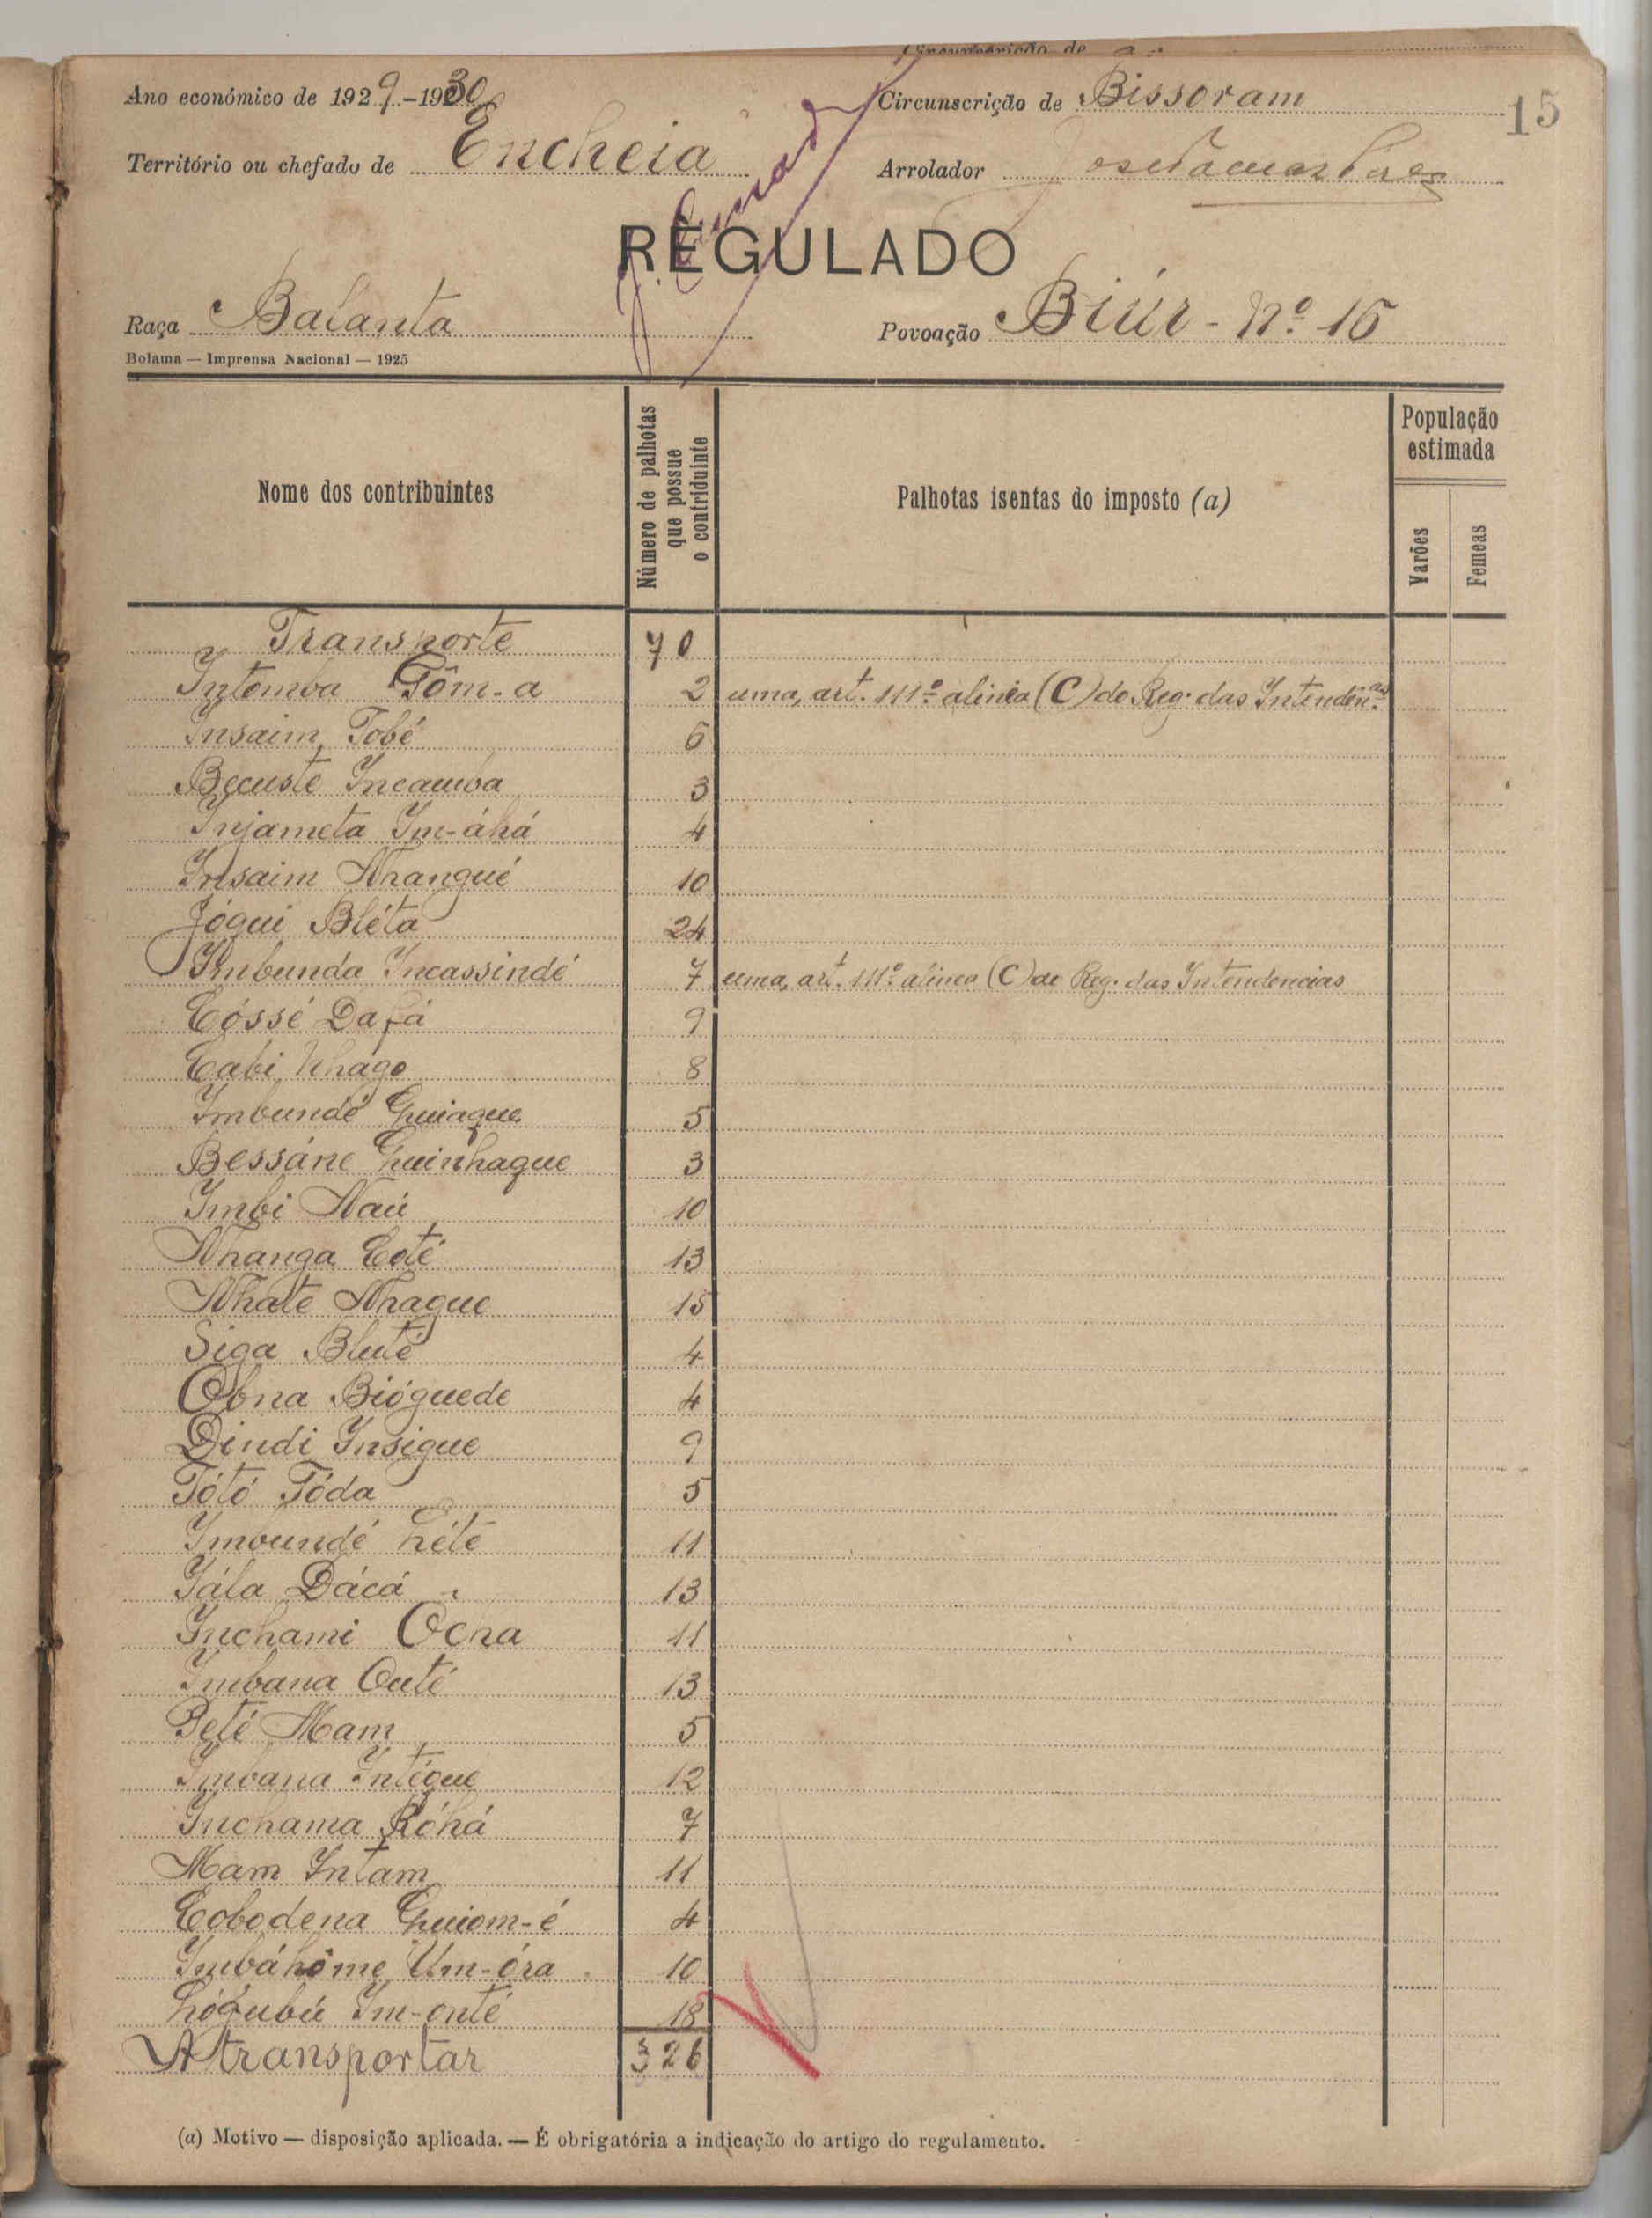 Circunscrição de
Ano económico de 1929-1930
Circunscrição de Bissoram
15
Território ou chefado de Encheia
Arrolador
REGULADO
Raça Balanta
Povoação Biúr - nº 16
Bolama — Imprensa Nacional — 1925
Nome dos contribuintes
Número de palhotas que possue o contriduinte
Palhotas isentas do imposto (a)
População estimada
Varões
Femeas
Transporte 70
Intomba Tôm-a 2 uma, art. 111º alinéa (C) do Reg. das Intendênᵃˢ
Insaim Tobé 6
Becuste Incamba 3
Injameta Im-áhá 4
Insaim Nhangué 10
Jógui Bléta 24
Imbunda Incassindé 7 uma, art. 111º alinea (C) do Reg. das Intendencias
Cóssé Dafá 9
Cabi Nhago 8
Imbundé Guiague 5
Bessáne Guinhague 3
Imbi Naú 10
Nhanga Coté 13
Nhate Nhague 15
Siga Bluté 4
Obna Bióguede 4
Dindi Insigue 9
Tótó Tóda 5
Imbundé Lété 11
Iála Dácá 13
Inchami Ocha 11
Imbana Outé 13
Beté Mam 5
Imbana Intégue 12
Inchama Róhá 7
Mam Intam 11
Cobodena Guiom-é 4
Imbáhóme Um-óra 10
Im-onté 18
A transportar 326
(a) Motivo — disposição aplicada. — É obrigatória a indicação do artigo do regulamento.